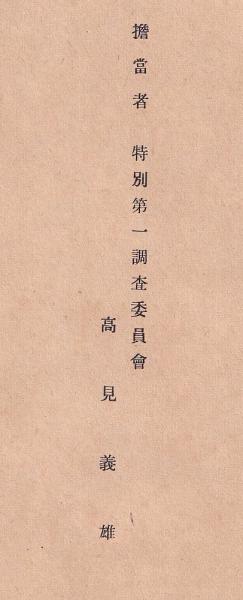 擔當者 特別第一調査委員會
高見義雄